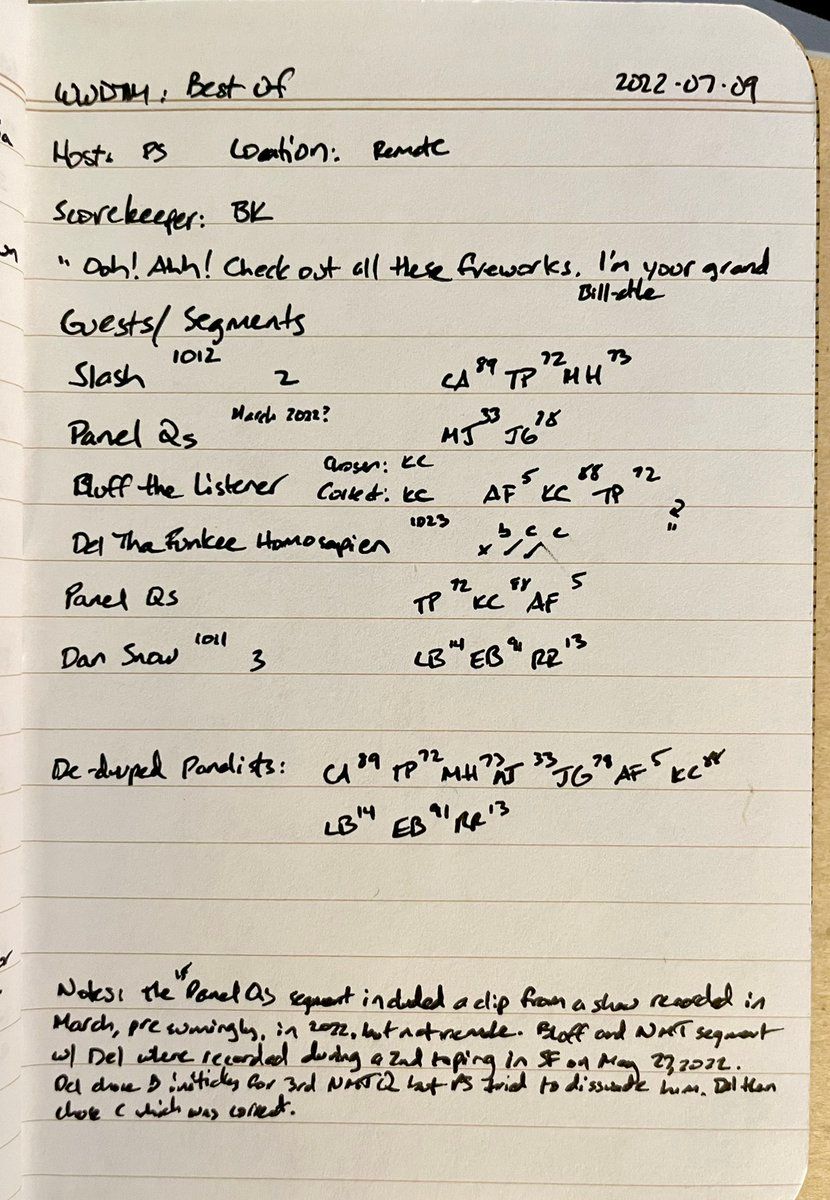 WWDTM: Best Of 2022-07-09
Host: PS Location: Remote
Scorekeeper: BK
" Ooh! Ahh! Check out all these fireworks. I'm your grand
Bill-ale
Guests/Segments
Slash 1012 2 CA 89 TP 72 MH 73
Panel Qs March 2022? MJ 33 JG 78
Chosen: KC
Bluff the Listener Correct: KC AF 5 KC 88 TP 72
Del Tha Funkee Homosapien 1023 x b c c 2
Panel Qs TP 72 KC 88 AF 5
Dan Snow 1011 3 LB 14 EB 91 RR 13
De-duped Panelists: CA 89 TP 72 MH 73 MJ 33 JG 78 AF 5 KC 88
LB 14 EB 91 RR 13
Notes: the 1st Panel Qs segment included a clip from a show recorded in
March, presumingly, in 2022, but not remote. Bluff and NMJ segment
w/ Del where recorded during a 2nd taping in SF on May 27, 2022.
Del chose B initially for 3rd NMJ Q but PS tried to dissuade him. Del then
chose C which was correct.